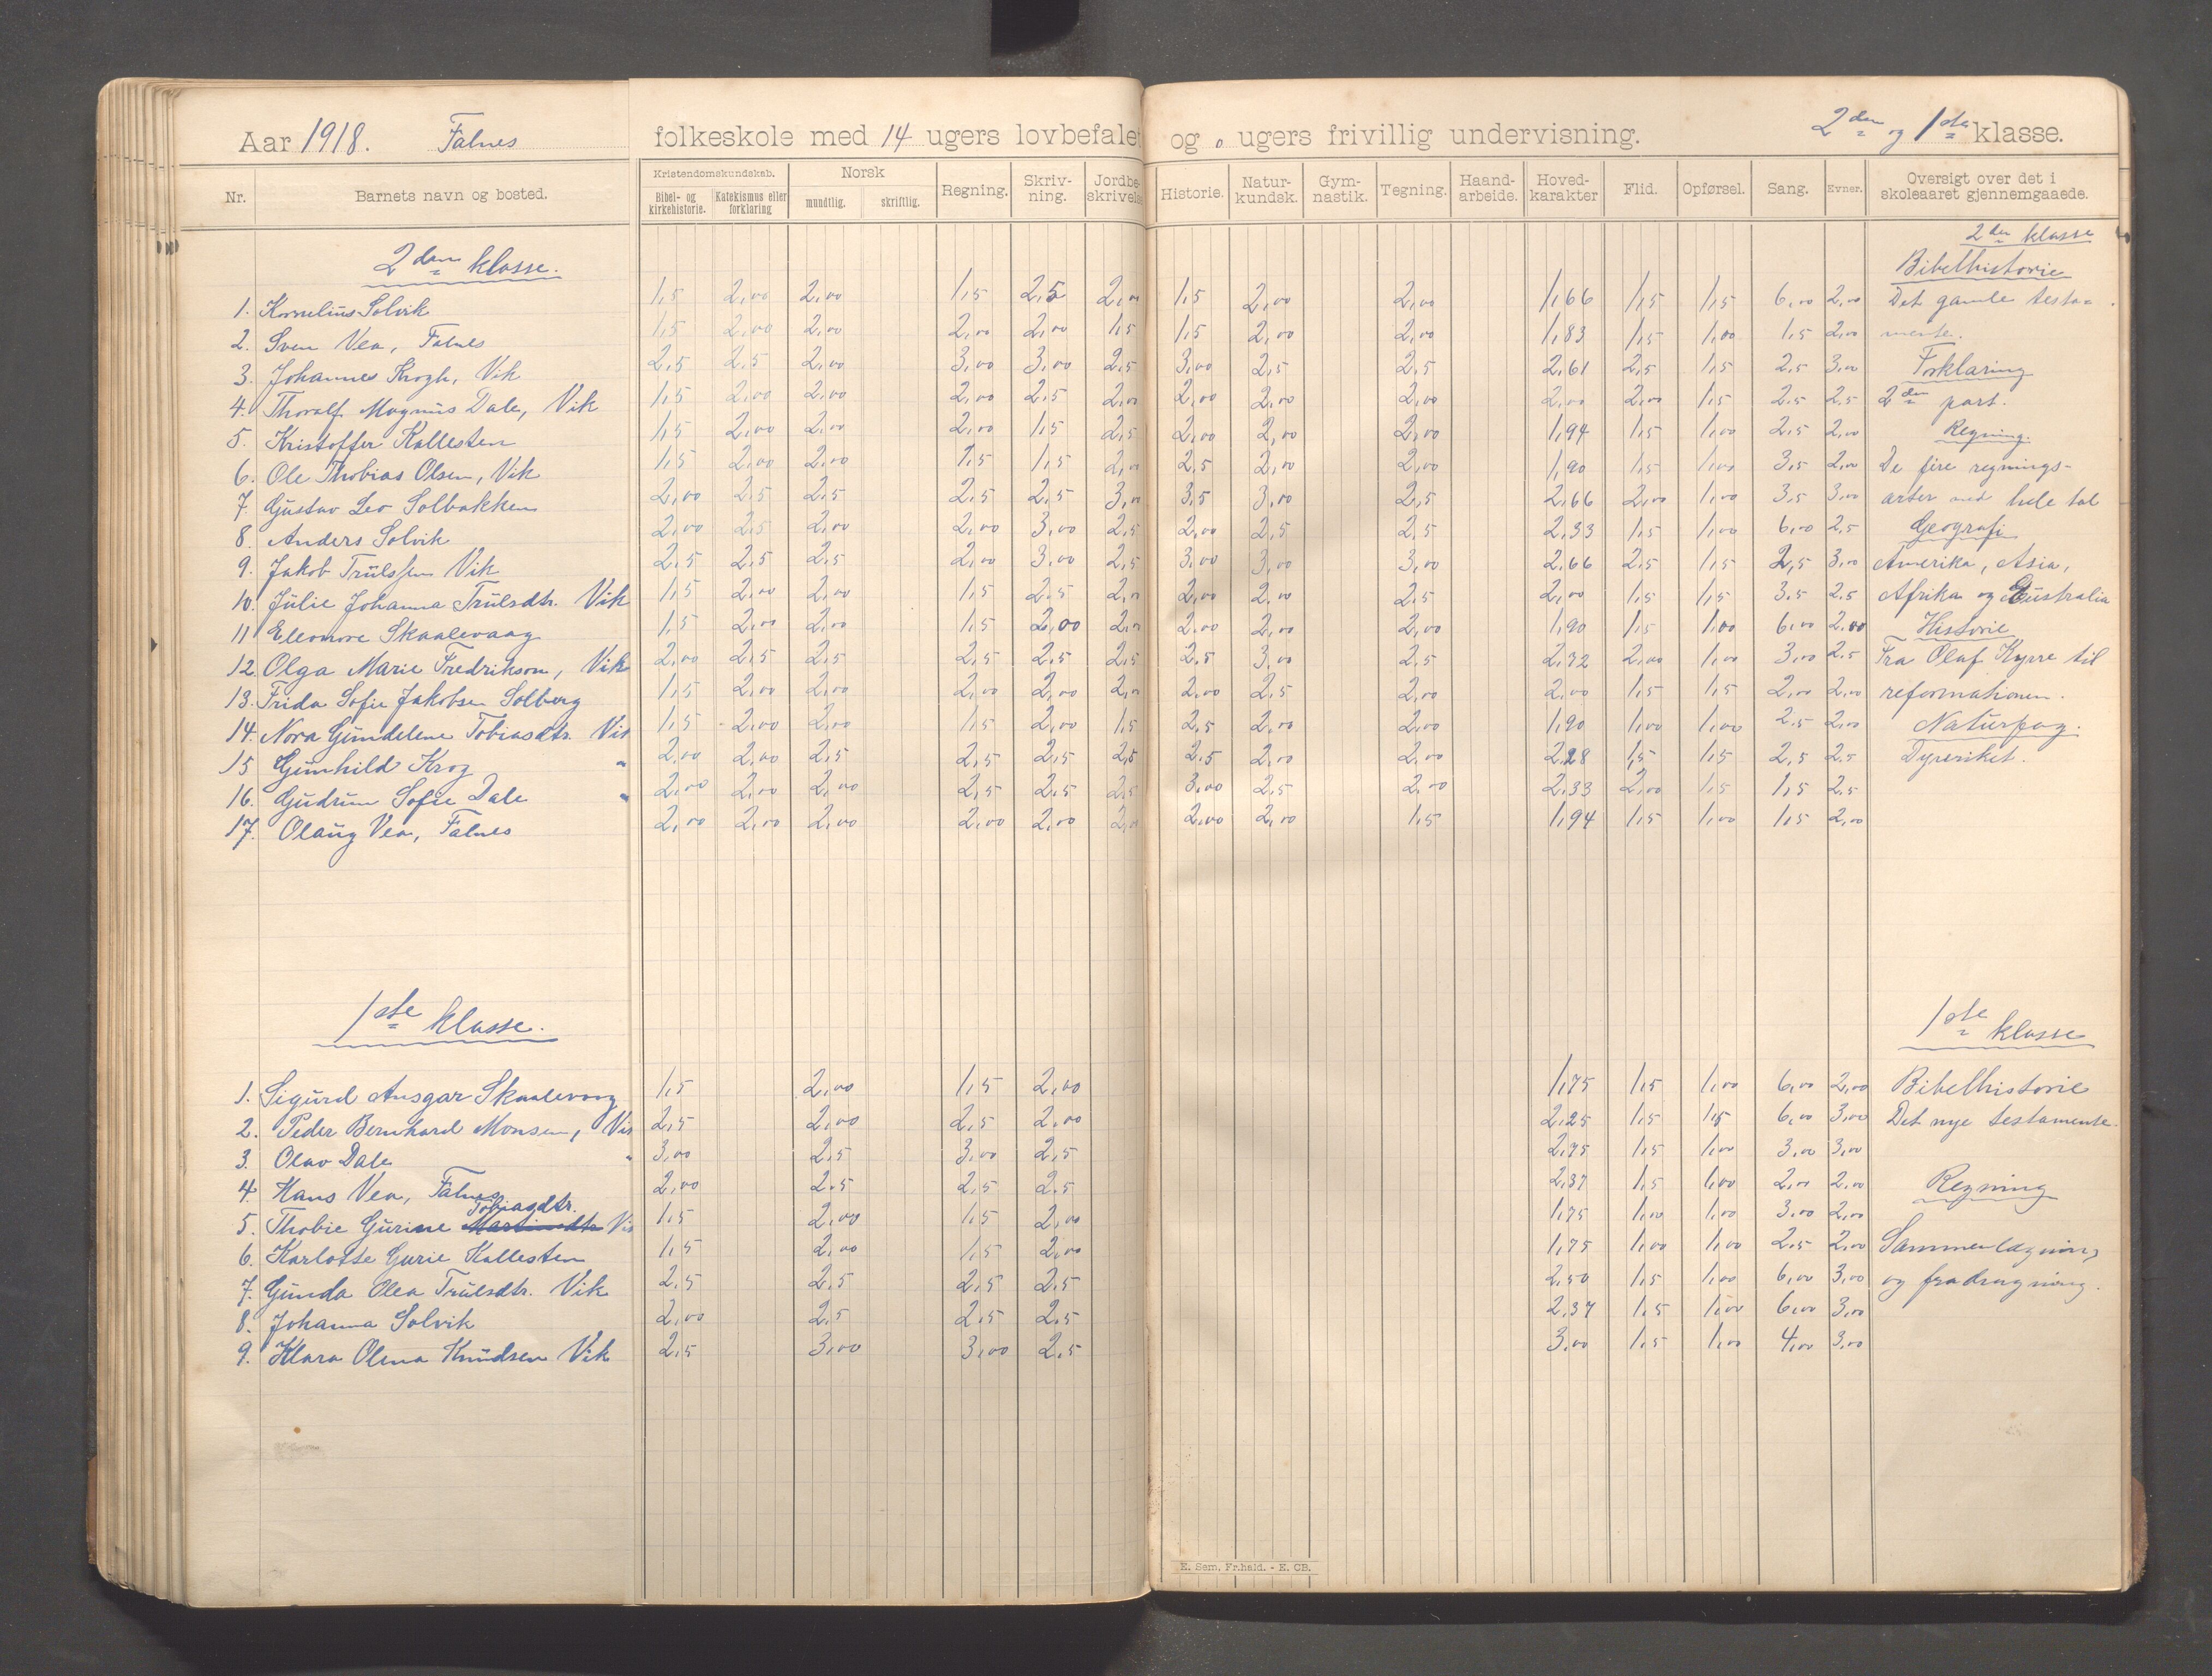 Aar 1918. Falnes folkeskole med 14 ugers lovbefalet og 0 ugers frivillig undervisning. 2den og 1ste klasse.
Nr. Barnets navn og bosted. Kristendomskundskab. Bibel- og kirkehistorie. Katekismus eller forklaring Norsk mundtlig. skriftlig. Regning. Skrivning. Jordbeskrivelse Historie. Naturkundsk. Gymnastik. Tegning. Haandarbeide. Hovedkarakter Flid. Opførsel. Sang. Evner. Oversigt over det i skoleaaret gjennemgaaede.
2den klasse. 2den klasse
Bibelhistorie
1. Kornelius Solvik 1,5 2,00 2,00 1,5 2,5 2,00 1,5 2,00 2,00 1,66 1,5 1,5 6,00 2,00 Det gamle testa=
2. Sven Vea, Falnes 1,5 2,00 2,00 2,00 2,00 1,5 1,5 2,00 2,00 1,83 1,5 1,00 1,5 2,00 mente.
3. Johannes Krogh, Vik 2,5 2,5 2,00 3,00 3,00 2,5 3,00 2,5 2,5 2,61 2,5 1,5 2,5 3,00 Forklaring
4. Thoralf Magnus Dale, Vik 1,5 2,00 2,00 2,00 2,5 2,00 2,00 2,00 2,00 2,00 2,00 1,5 2,5 2,5 2den part.
5. Kristoffer Kallesten 1,5 2,00 2,00 2,00 1,5 2,5 2,00 2,00 2,00 1,94 1,5 1,00 2,5 2,00 Regning.
6. Ole Thobias Olsen, Vik 1,5 2,00 2,00 1,5 1,5 2,00 2,5 2,00 2,00 1,90 1,5 1,00 3,5 2,00 De fire regnings-
7. Gustav Leo Solbakken 2,00 2,5 2,5 2,5 2,5 3,00 3,5 3,00 2,5 2,66 2,00 1,00 3,5 3,00 arter med hele tal
8. Anders Solvik 2,00 2,5 2,00 2,00 3,00 2,5 2,00 2,5 2,5 2,33 1,5 1,00 6,00 2,5 Geografi
9. Jakob Trulssen Vik 2,5 2,5 2,5 2,00 3,00 2,5 3,00 3,00 3,00 2,66 2,5 1,5 2,5 3,00 Amerika, Asia,
10. Julie Johanna Trulsdtr. Vik 1,5 2,00 2,00 1,5 2,5 2,00 2,00 2,00 2,5 2,00 1,5 1,5 3,5 2,5 Afrika og Australia
11 Eleonore Skaalevaag 1,5 2,00 2,00 1,5 2,00 2,00 2,00 2,00 2,00 1,90 1,5 1,00 6,00 2,00 Historie
12. Olga Marie Fredrikson, Vik 2,00 2,5 2,5 2,5 2,5 2,5 2,5 3,00 2,5 2,72 2,00 1,00 3,00 2,5 Fra Olaf Kyrre til
13. Frida Sofie Jakobsen Solberg 1,5 2,00 2,00 2,00 2,00 2,00 2,00 2,5 2,00 2,00 1,5 1,5 2,00 2,00 reformationen.
14. Nora Gundelene Tobiasdtr. Vik 1,5 2,00 2,00 1,5 2,00 1,5 2,5 2,00 2,00 1,90 1,00 1,00 2,5 2,00 Naturfag.
15 Gunhild Krog " 2,00 2,00 2,5 2,5 2,5 2,5 2,5 2,00 2,00 2,28 1,5 1,5 2,5 2,5 Dyreriket.
16. Gudrun Sofie Dale " 2,00 2,00 2,00 2,5 2,5 2,5 3,00 2,5 2,00 2,33 2,00 1,5 1,5 2,5
17. Olaug Vea, Falnes 2,00 2,00 2,00 2,00 2,00 2,00 2,00 2,00 1,5 1,94 1,5 1,00 1,5 2,00
1ste klasse. 1ste klasse
1. Sigurd Ansgar Skaalevaag 1,5 2,00 1,5 2,00 1,75 1,5 1,00 6,00 2,00 Bibelhistorie
2. Peder Bernhard Monsen, Vik 2,5 2,00 2,5 2,00 2,25 1,5 1,5 6,00 3,00 Det nye testamente.
3. Olav Dale " 3,00 2,5 3,00 2,5 2,75 1,5 1,00 3,00 3,00
4. Hans Vea, Falnes 2,00 2,5 2,5 2,5 2,37 1,5 1,00 2,00 2,00 Regning
5. Thobie Gurine Martinsdtr Tobiasdtr. Vik 1,5 2,00 1,5 2,00 1,75 1,00 1,00 3,00 2,00
6. Karlotte Gurie Kallesten 1,5 2,00 1,5 2,00 1,75 1,00 1,00 2,5 2,00 Sammenlægning
7. Gunda Olea Trulsdtr. Vik 2,5 2,5 2,5 2,5 2,50 1,5 1,00 6,00 3,00 og fradragning.
8. Johanna Solvik 2,00 2,5 2,5 2,5 2,37 1,5 1,00 6,00 3,00
9. Klara Olena Knudsen Vik 2,5 3,00 3,00 2,5 3,00 1,5 1,00 4,00 3,00
E. Sem, Fr.hald. - E. CB.